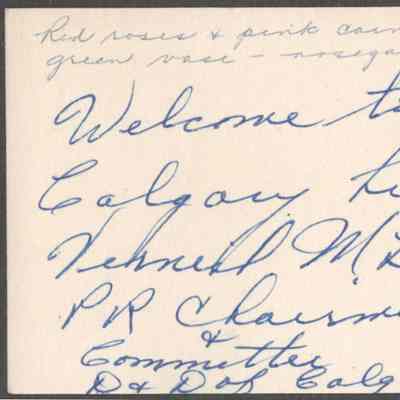 Red roses & pink carn
green vase - nosega
Welcome to
Calgary
M.
PR Chairm
&
Committee
D & D of Calg